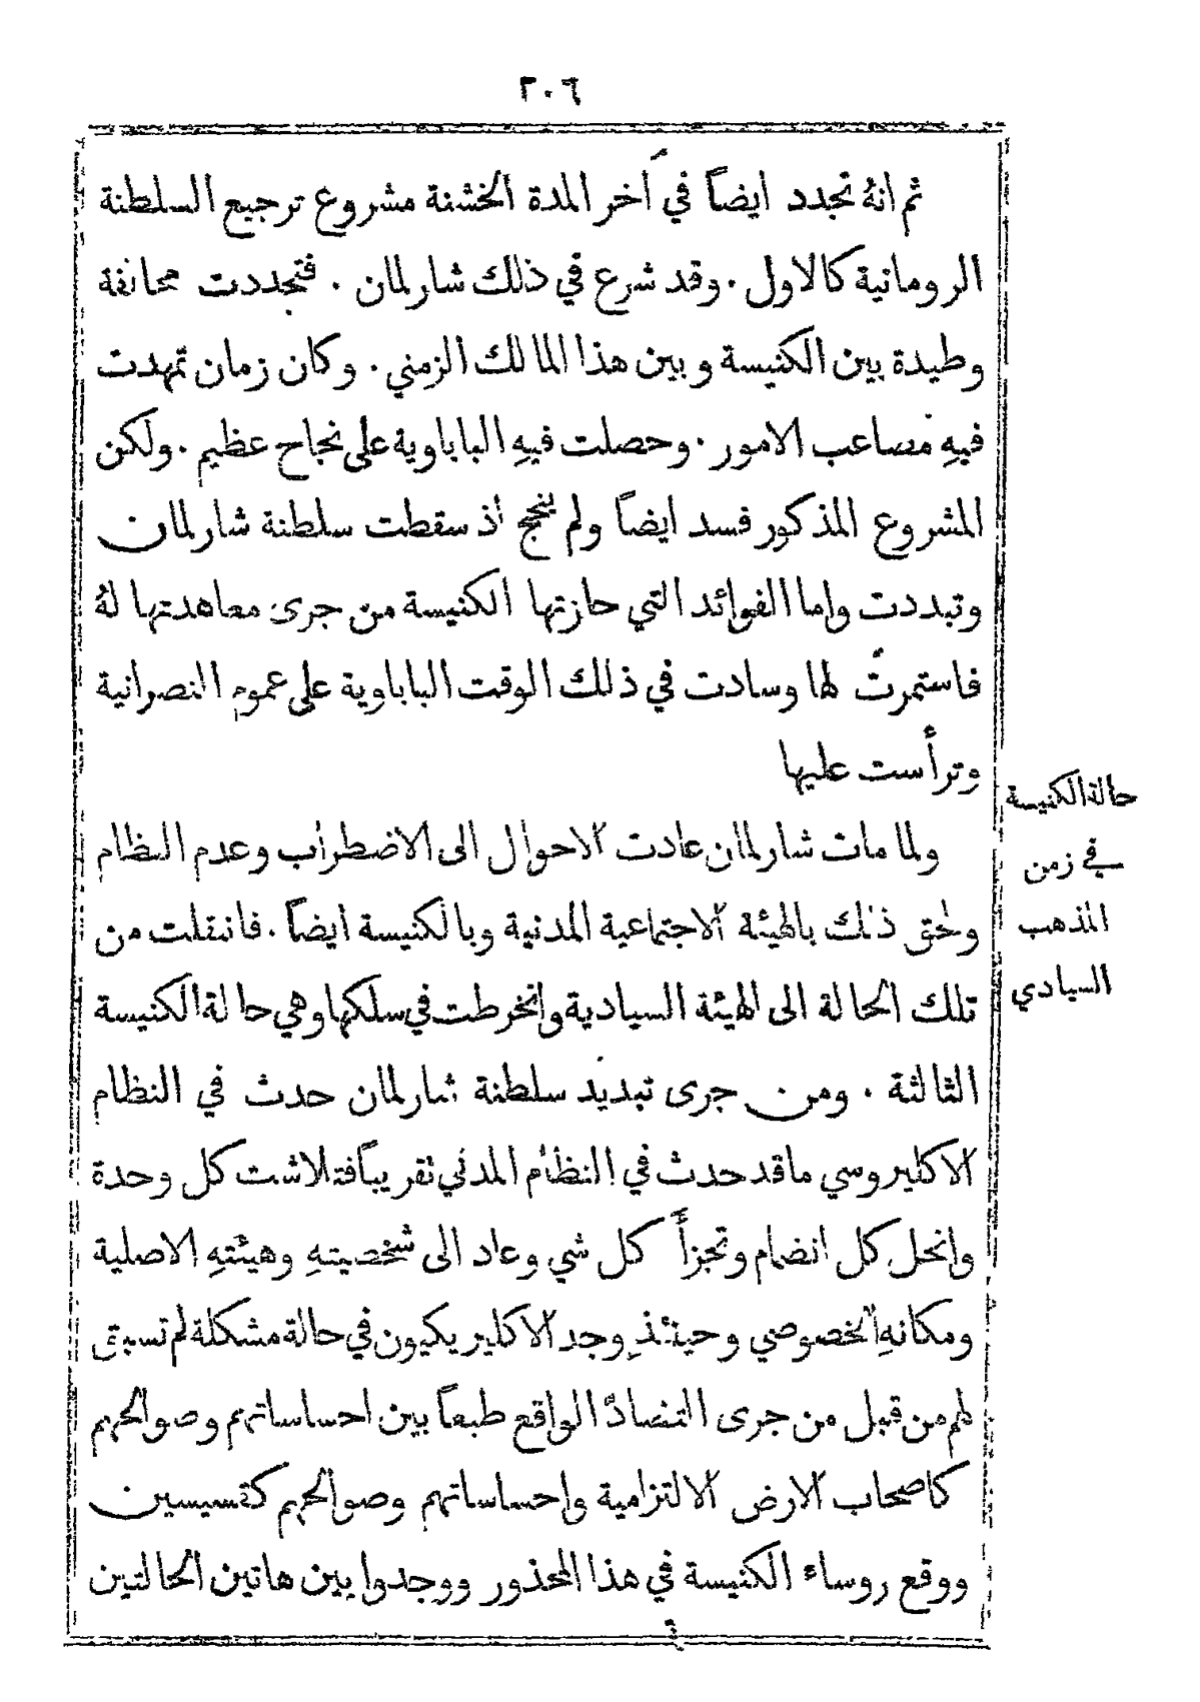 ٢٠٦
ثم انهُ تجدد ايضاً في آخر المدة الخشنة مشروع ترجيع السلطنة
الرومانية كالاول. وقد شرع في ذلك شارلمان. فتجددت محالفة
وطيدة بين الكنيسة وبين هذا المالك الزمني. وكان زمان تمهدت
فيهِ مصاعب الامور. وحصلت فيهِ الباباوية على نجاح عظيم. ولكن
المشروع المذكور فسد ايضاً ولم ينجح اذ سقطت سلطنة شارلمان
وتبددت واما الفوائد التي حازتها الكنيسة من جرى معاهدتها لهُ
فاستمرت لها وسادت في ذلك الوقت الباباوية على عموم النصرانية
وترأست عليها
حالة الكنيسة
في زمن
المذهب
السيادي
ولما مات شارلمان عادت الاحوال الى الاضطراب وعدم النظام
ولحق ذلك بالهيئة الاجتماعية المدنية وبالكنيسة ايضاً. فانتقلت من
تلك الحالة الى الهيئة السيادية وانخرطت في سلكها وهي حالة الكنيسة
الثالثة. ومن جرى تبديد سلطنة شارلمان حدث في النظام
الاكليروسي ما قد حدث في النظام المدني تقريباً فتلاشت كل وحدة
وانحل كل انضمام وتجزأ كل شي وعاد الى شخصيتهِ وهيئتهِ الاصلية
ومكانهِ الخصوصي وحينئذٍ وجد الاكليريكيون في حالة مشكلة لم تسبق
لهم من قبل من جرى التضادّ الواقع طبعاً بين احساساتهم وصوالحهم
كاصحاب الارض الالتزامية واحساساتهم وصوالحهم كقسيسين
ووقع روساء الكنيسة في هذا المحذور ووجدوا بين هاتين الحالتين